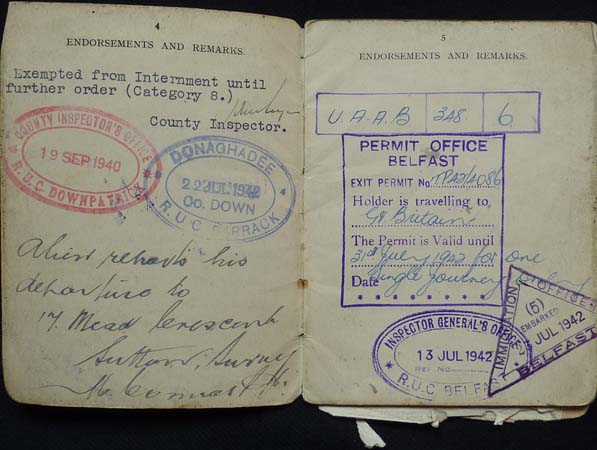 4
ENDORSEMENTS AND REMARKS.
Exempted from Internment until
further order (Category 8.)
County Inspector.
COUNTY INSPECTOR'S OFFICE
19 SEP 1940
R.U.C. DOWNPATRICK
DONAGHADEE
22 JUL 1942
Co. DOWN
R.U.C. BARRACK
Alien reports his
departure to
17, Mead Crescent
Sutton, Surrey
5
ENDORSEMENTS AND REMARKS.
U.A.A.B 348 6.
PERMIT OFFICE
BELFAST
EXIT PERMIT No.
Holder is travelling to
Gt Britain
The Permit is Valid until
31st July 1942 for one
Date single journey only
INSPECTOR GENERAL'S OFFICE
13 JUL 1942
REF. NO.
R.U.C. BELFAST
IMMIGRATION OFFICER
(5)
EMBARKED
JUL 1942
BELFAST